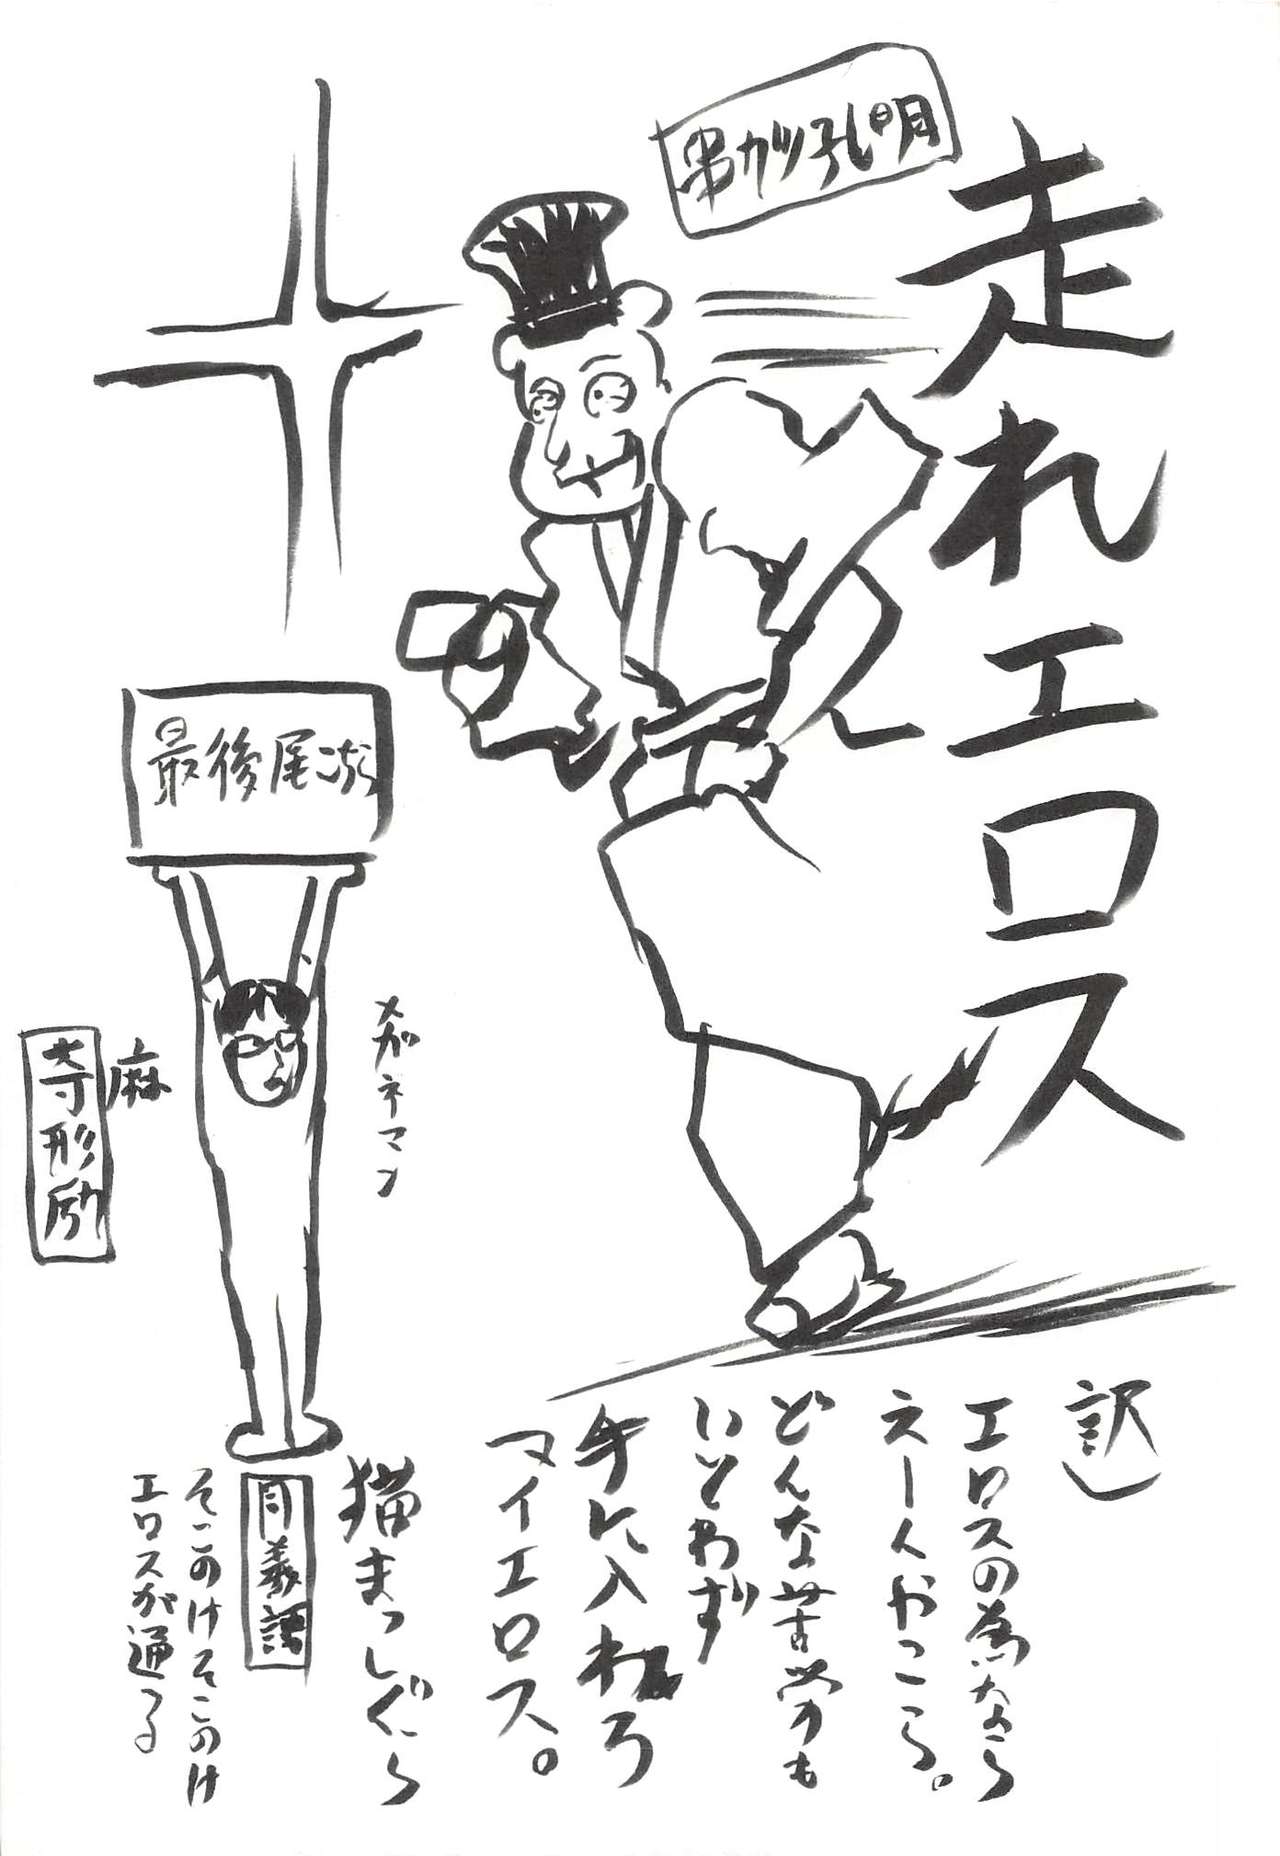 走れエロス
串カツ孔明
訳)
エロスの為なら
えーんやこーら。
どんな苦労も
いとわず
手に入れろ
マイエロス。
猫まっしぐら
同義語
そこのけそこのけ
エロスが通る
最後尾
メガネマン
麻
寺形励